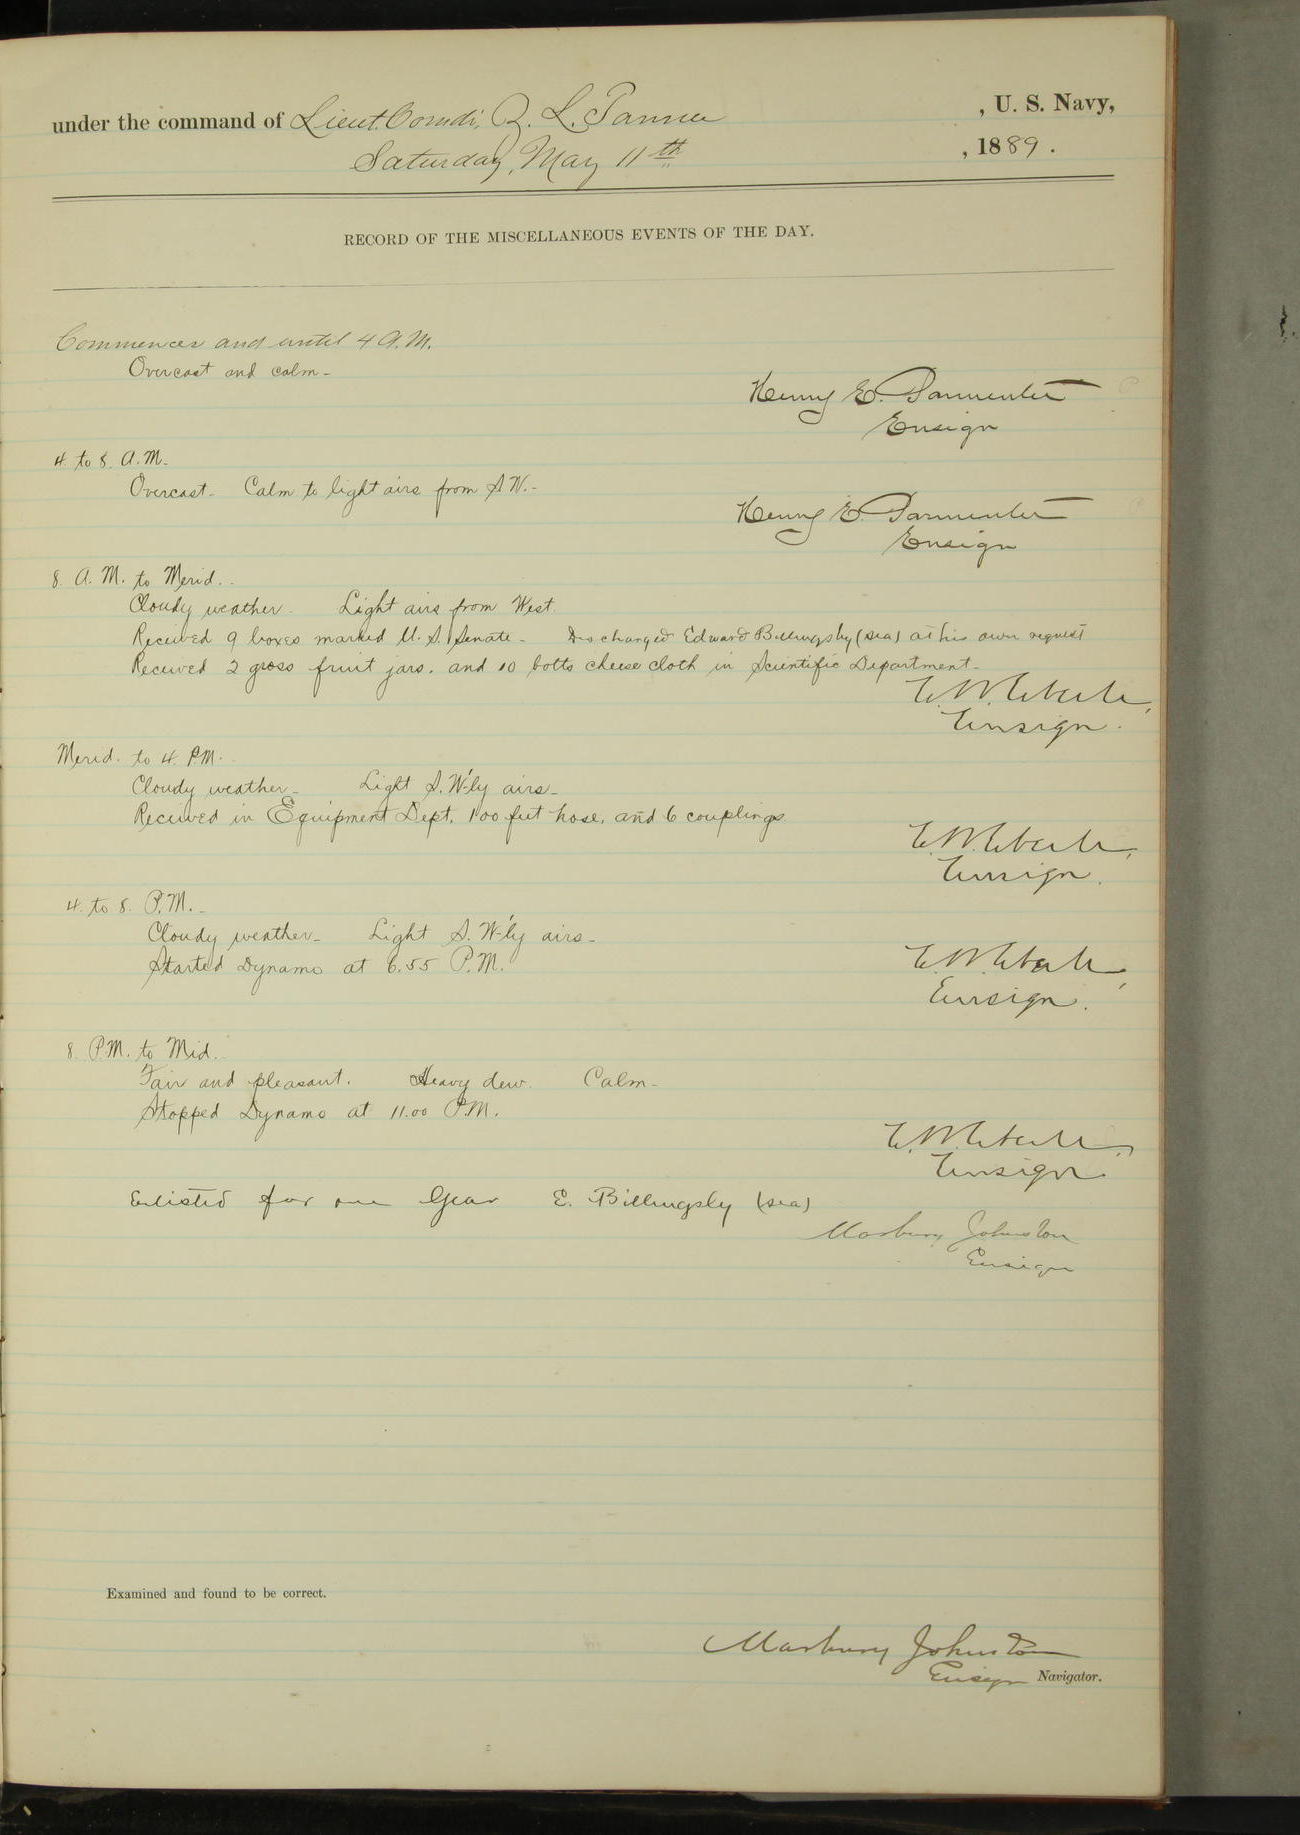 under the command of Lieut. Comdr. Z. L. Tanner, U. S. Navy,
Saturday, May 11th, 1889.
RECORD OF THE MISCELLANEOUS EVENTS OF THE DAY.
Commences and until 4 A.M.
Overcast and calm-
Henry E. Parmenter
Ensign
4 to 8 A.M.
Overcast- Calm to light airs from S.W.-
Henry E. Parmenter
Ensign
8 A.M. to Merid.
Cloudy weather- Light airs from West.
Received 9 boxes marked U.S. Senate- Discharged Edward Billingsby (sea) at his own request
Received 2 gross fruit jars, and 10 bolts cheese cloth in Scientific Department-
E. W. Eberle,
Ensign.
Merid. to 4 P.M.
Cloudy weather- Light S. W'ly airs-
Received in Equipment Dept. 100 feet hose, and 6 couplings
E. W. Eberle,
Ensign.
4 to 8 P.M.-
Cloudy weather- Light S. W'ly airs-
Started Dynamo at 6.55 P.M.
E. W. Eberle,
Ensign.
8 P.M. to Mid.
Fair and pleasant. Heavy dew. Calm-
Stopped Dynamo at 11.00 P.M.
E. W. Eberle,
Ensign
Enlisted for one Year E. Billingsly (sea)
Marbury Johnston
Ensign
Examined and found to be correct.
Marbury Johnston
Ensign Navigator.